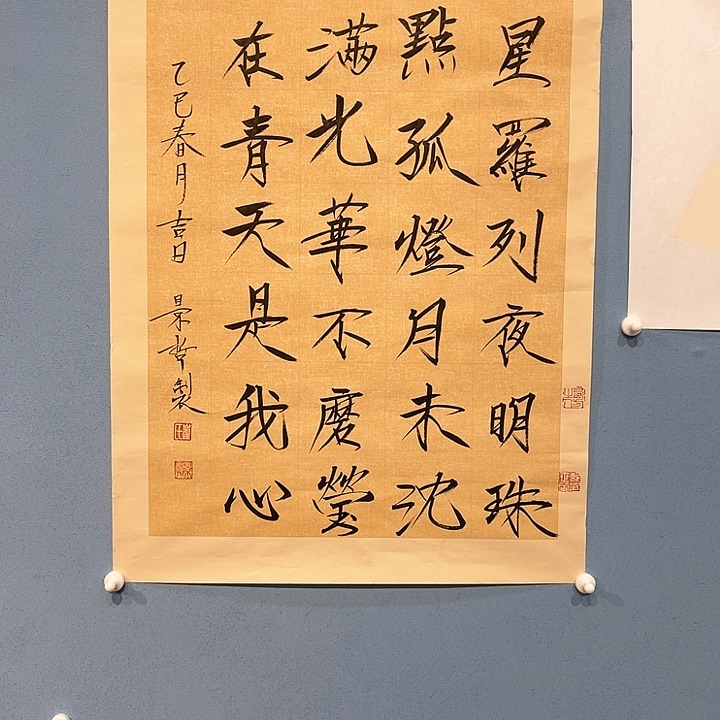 星羅列夜明珠
點孤燈月未沈
滿光華不磨瑩
在青天是我心
乙巳春月吉日 景哲製